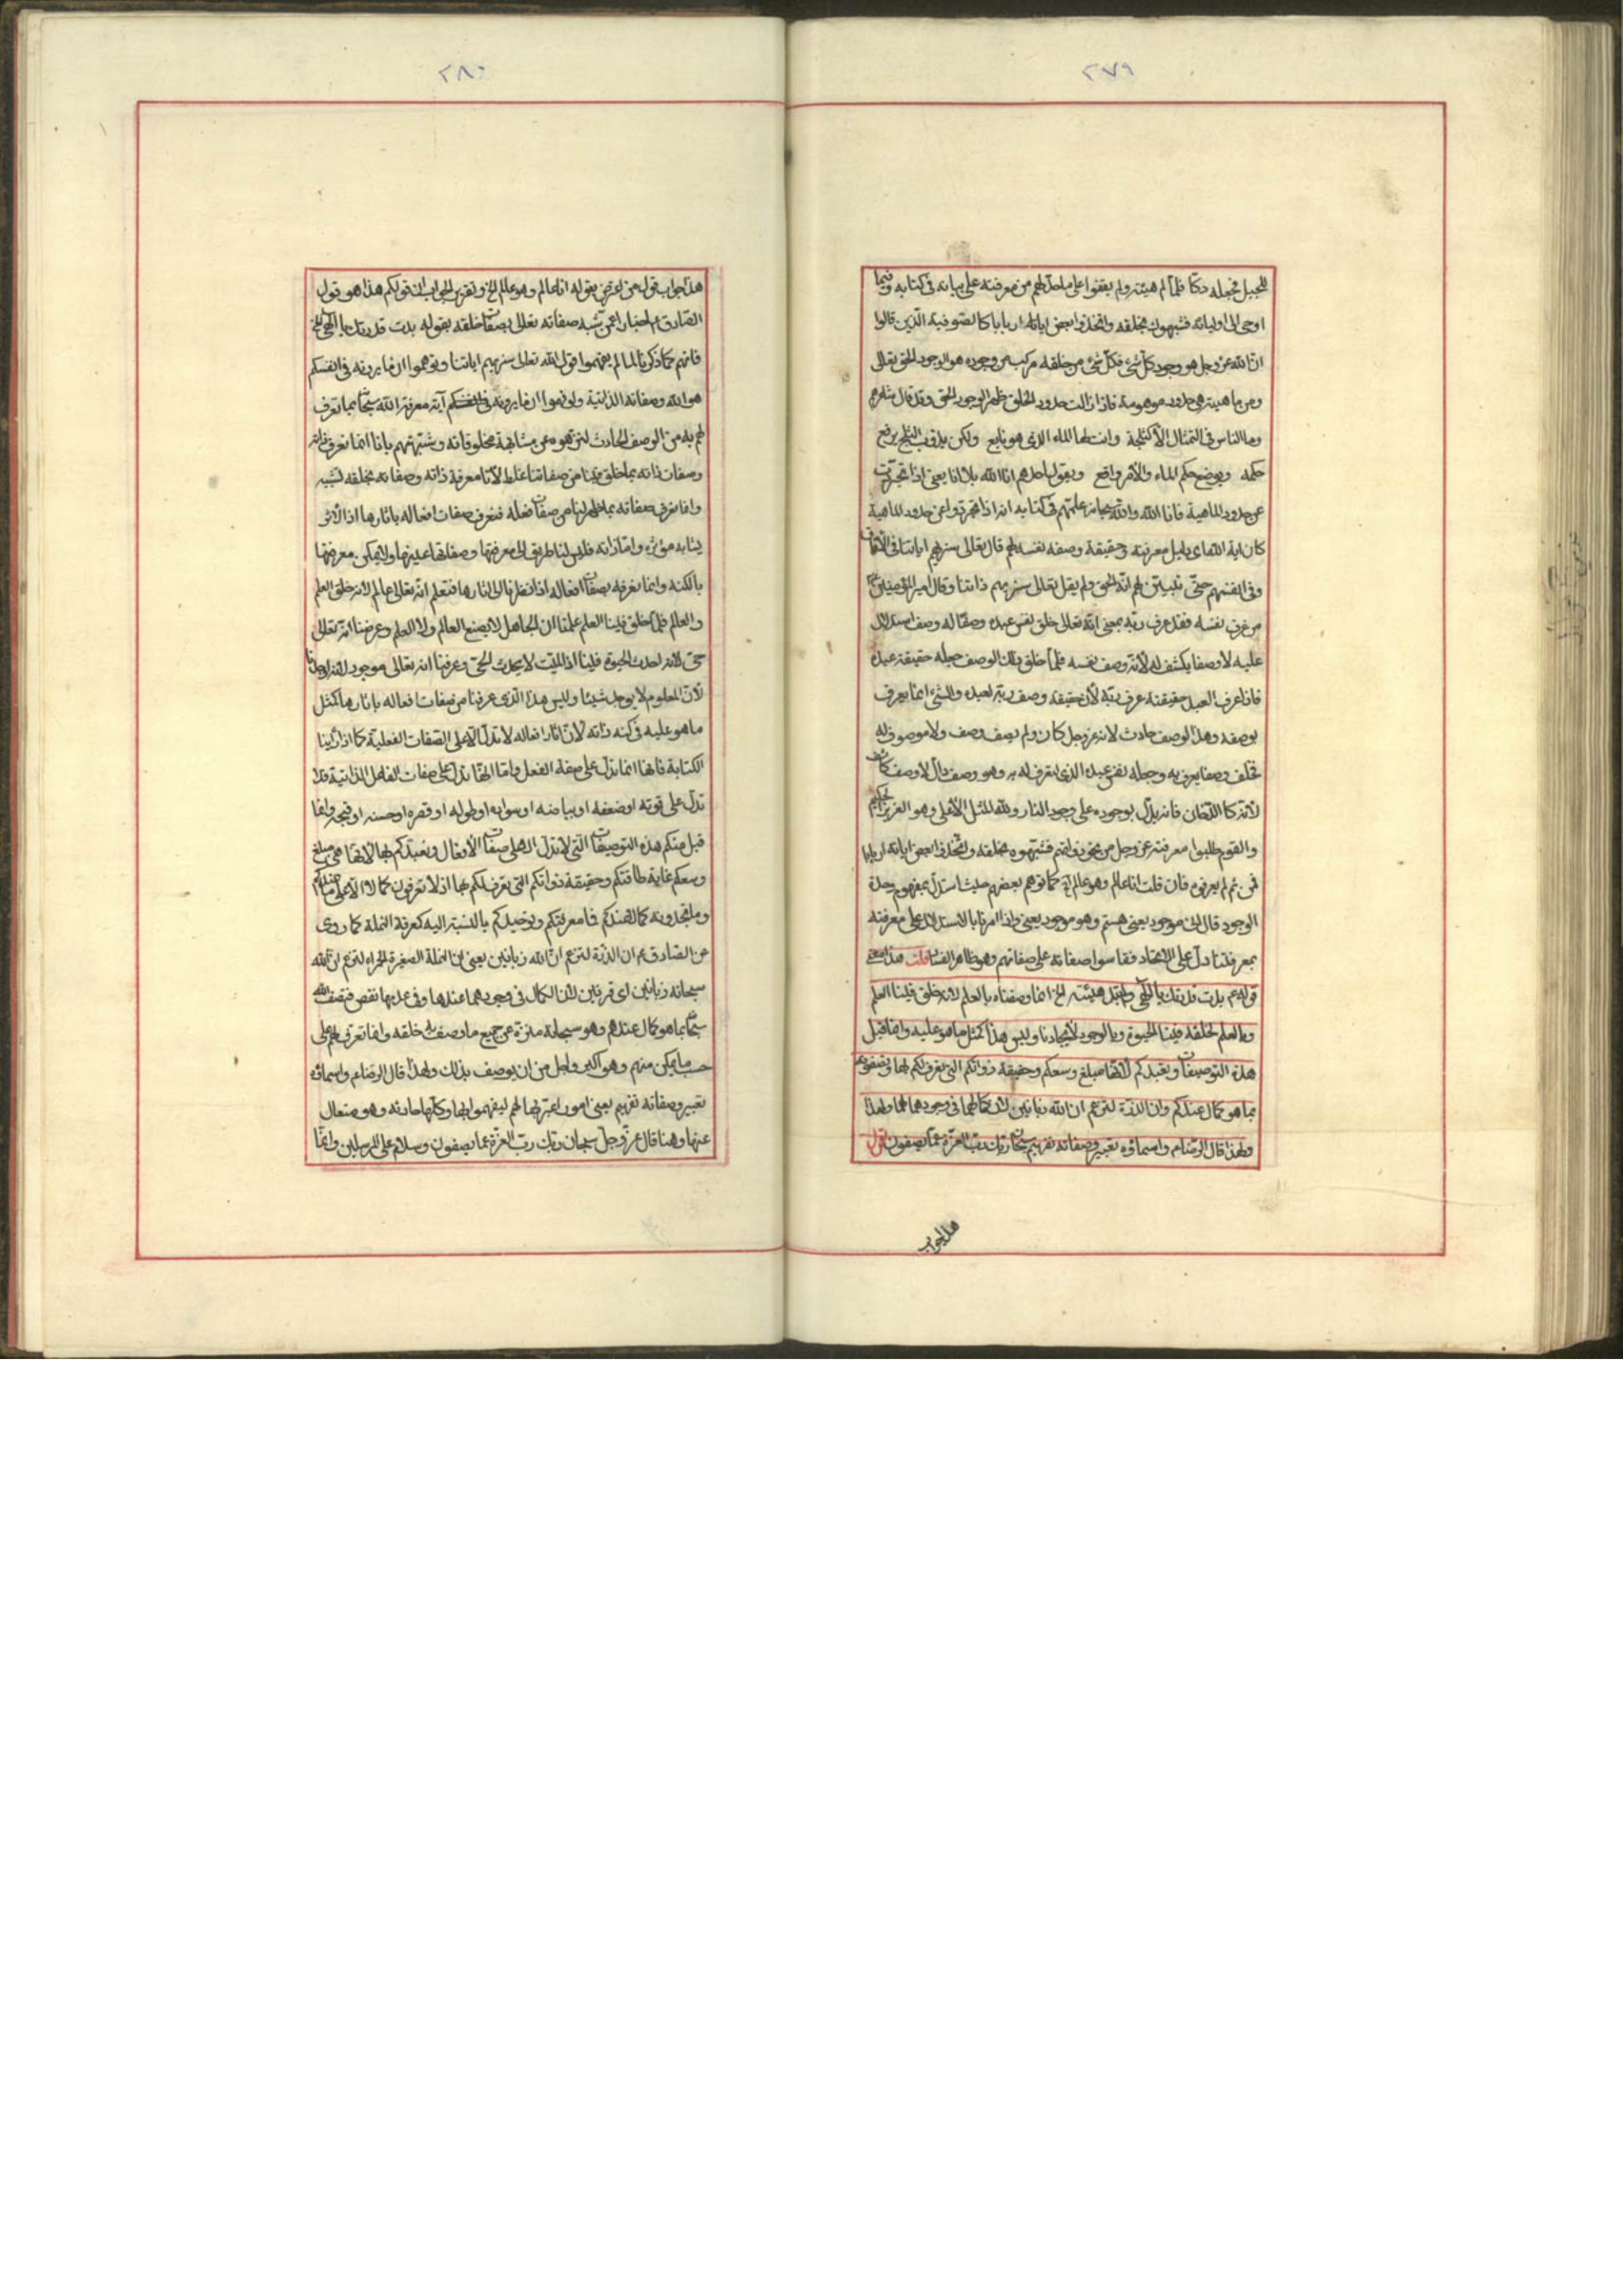 ٢٧٩
للجبل فجعله دكا فلما لم هيئته ولم يقفوا على ما حد لهم من معرفته على بيانه في كتابه وفيما
اوحى الى اوليائه فشبهوك بخلقه واتخذوا بعض اياتك اربابا كالصوفية الذين قالوا
ان الله عز وجل هو وجود كل شئ فكل شئ من خلقه مركب من وجوده هو الوجود الحق تعالى
ومن ماهيته هي حدود موهومة فاذا زالت حدود الخلق ظهر الوجود الحق وقد قال شاعرهم
وما الناس في التمثال الا كثلجة وانت لها الماء الذي هو نابع ولكن يذوب الثلج يرفع
حكمه ويوضع حكم الماء والامر واقع ويقول احدهم انا الله بلا انا يعني اذا تجردت
عن حدود الماهية فانا الله والله سبحانه علمهم في كتابه انه اذا تجردوا عن حدود الماهية
كان اية الله اي دليل معرفته وحقيقة وصفه نفسه لهم قال تعالى سنريهم اياتنا في الآفاق
وفي انفسهم حتى يتبين لهم انه الحق ولم يقل تعالى سنريهم ذاتنا وقال امير المؤمنين
من عرف نفسه فقد عرف ربه بمعنى انه تعالى خلق نفس عبده وصفا له وصف استدلال
عليه لا وصفا يكشف له لانه وصف نفسه فلما خلق ذلك الوصف جعله حقيقة عبده
فاذا عرف العبد حقيقته عرف ربه لان حقيقته وصف ربه لعبده والشئ انما يعرف
بوصفه وهذا الوصف حادث لانه عز وجل كان ولم يصف وصف ولا موصوف له
فخلق وصفا يعرف به وجعله نفس عبده الذي تعرف له به وهو وصف دال لا وصف كاشف
لانه كالدخان فانه يدل بوجوده على وجود النار ولله المثل الاعلى وهو العزيز الحكيم
والقوم طلبوا معرفته عز وجل من نحو ذواتهم فشبهوه بخلقه واتخذوا بعض اياته اربابا
فمن ثم لم يعرفوه فان قلت انا عالم وهو عالم كما توهم بعضهم حيث استدل بمفهوم وحدة
الوجود قال انك موجود يعني هستم وهو موجود يعني واذا امرنا بالاستدلال على معرفته
بمعرفتنا دل على الاتحاد فقاسوا صفاته على صفاتهم وهو ظاهر الفساد قلت هذا معنى
قوله ع بدت قدرتك يا الهي ولم تبد هيئته الخ انما وصفناه بالعلم لانه خلق فينا العلم
وبالعلم لخلقه فينا الحيوة وبالوجود لايجادنا وليس هذا كمثل ما هو عليه وانما قبل
هذه التوصيفات وتعبدكم لانها مبلغ وسعكم وحقيقة ذواتكم التي تعرف لكم بها وتصفونه
بما هو كمال عندكم وان الذرة لتزعم ان لله زبانيتين لان كمالها في وجودهما لها ولهذا
ولهذا قال الرضا ع واسماؤه تعبير وصفاته تفهيم سبحان ربك رب العزة عما يصفون اقول
هذا جواب
٢٨٠
هذا جواب قول من اعترض بقوله انا عالم وهو عالم الخ وتقرير الجواب ان قولكم هذا هو قول
الصادق ع اخبارا عمن شبه صفاته تعالى بصفات خلقه بقوله بدت قدرتك يا الهي الخ
فانهم كما ذكرنا لما لم يفهموا قول الله تعالى سنريهم اياتنا وتوهموا ان ما يرونه في انفسكم
هو الله وصفاته الذاتية ولو فهموا ان ما يرونه في انفسكم آية معرفة الله سبحانه بما تعرف
لهم به من الوصف الحادث لنزهوه عن مشابهة مخلوقاته وشبهتهم بانا انما نعرف ذاته
وصفات ذاته بما خلق فينا من صفاتنا غلط لانا معرفة ذاته وصفاته بخلقه تشبيه
وانما نعرف صفاته بما ظهر لنا من صفات فعله فنعرف صفات افعاله باثارها اذ الاثر
يشابه مؤثره واما ذاته فليس لنا طريق الى معرفتها وصفاتها عينها ولا يمكن معرفتها
بالكنه وانما نعرفه بصفات افعاله اذا نظرنا الى اثارها فنعلم انه تعالى عالم لانه خلق العلم
والعالم فلما خلق فينا العلم علمنا ان الجاهل لا يصنع العالم ولا العلم وعرفنا انه تعالى
حي لانه احدث الحيوة فينا اذ الميت لا يحدث الحي وعرفنا انه تعالى موجود لانه اوجدنا
لان المعدوم لا يوجد شيئا وليس هذا الذي عرفنا من صفات افعاله باثارها كمثل
ما هو عليه في كنه ذاته لان اثار افعاله لا تدل الا على الصفات الفعلية كما اذا رأينا
الكتابة فانها انما تدل على صفة الفعل واما انها تدل على صفات الفاعل الذاتية فلا
تدل على قوته او ضعفه او بياضه او سواده او طوله او قصره او حسنه او قبحه وانما
قبل منكم هذه التوصيفات التي لا تدل الا على صفات الافعال وتعبدكم بها لانها هي مبلغ
وسعكم غاية طاقتكم وحقيقة ذواتكم التي تعرف لكم بها اذ لا تعرفون كمالا الا على ما عندكم
وما تجدونه كمالا عندكم فما معرفتكم وتوحيدكم بالنسبة اليه كمعرفة النملة كما روي
عن الصادق ع ان الذرة لتزعم ان لله زبانيتين يعني ان النملة الصغيرة الحمراء لتزعم ان لله
سبحانه زبانيتين اي قرنين لان الكمال في وجودهما عندها وفي عدمها نقص فتصف الله
سبحانه بما هو كمال عندهم وهو سبحانه منزه عن جميع ما وصفت خلقه وانما تعرف لهم على
حسب ما يمكن منهم وهو اكبر واجل من ان يوصف بذلك ولهذا قال الرضا ع واسماؤه
تعبير وصفاته تفهيم يعني امور اعتبرتها لهم ليفهموا بها وكلها حادثة وهو متعال
عنها وهنا قال عز وجل سبحان ربك رب العزة عما يصفون وسلام على المرسلين وانما